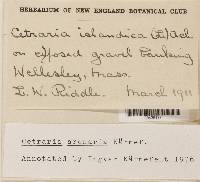 HERBARIUM OF NEW ENGLAND BOTANICAL CLUB
Cetraria islandica (L.) Ach.
on exposed gravel banking
Wellesley, Mass.
L. W. Riddle. March 1911
Cetraria arenaria Kärnef.
Annotated by Ingvar Kärnefelt 1976